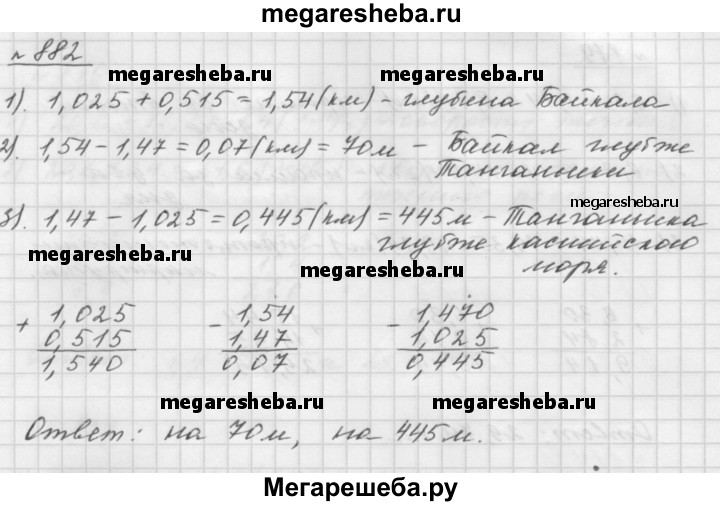 megaresheba.ru
№ 882
megaresheba.ru megaresheba.ru
1). 1,025 + 0,515 = 1,54 (км) - глубина Байкала
2). 1,54 - 1,47 = 0,07 (км) = 70 м - Байкал глубже
Танганьики
megaresheba.ru
3). 1,47 - 1,025 = 0,445 (км) = 445 м - Танганьика
глубже каспийского
megaresheba.ru
моря.
megaresheba.ru
+ 1,025 - 1,54 - 1,470
0,515 1,47 1,025
1,540 0,07 0,445
megaresheba.ru megaresheba.ru
Ответ: на 70 м, на 445 м.
Мегарешеба.ру